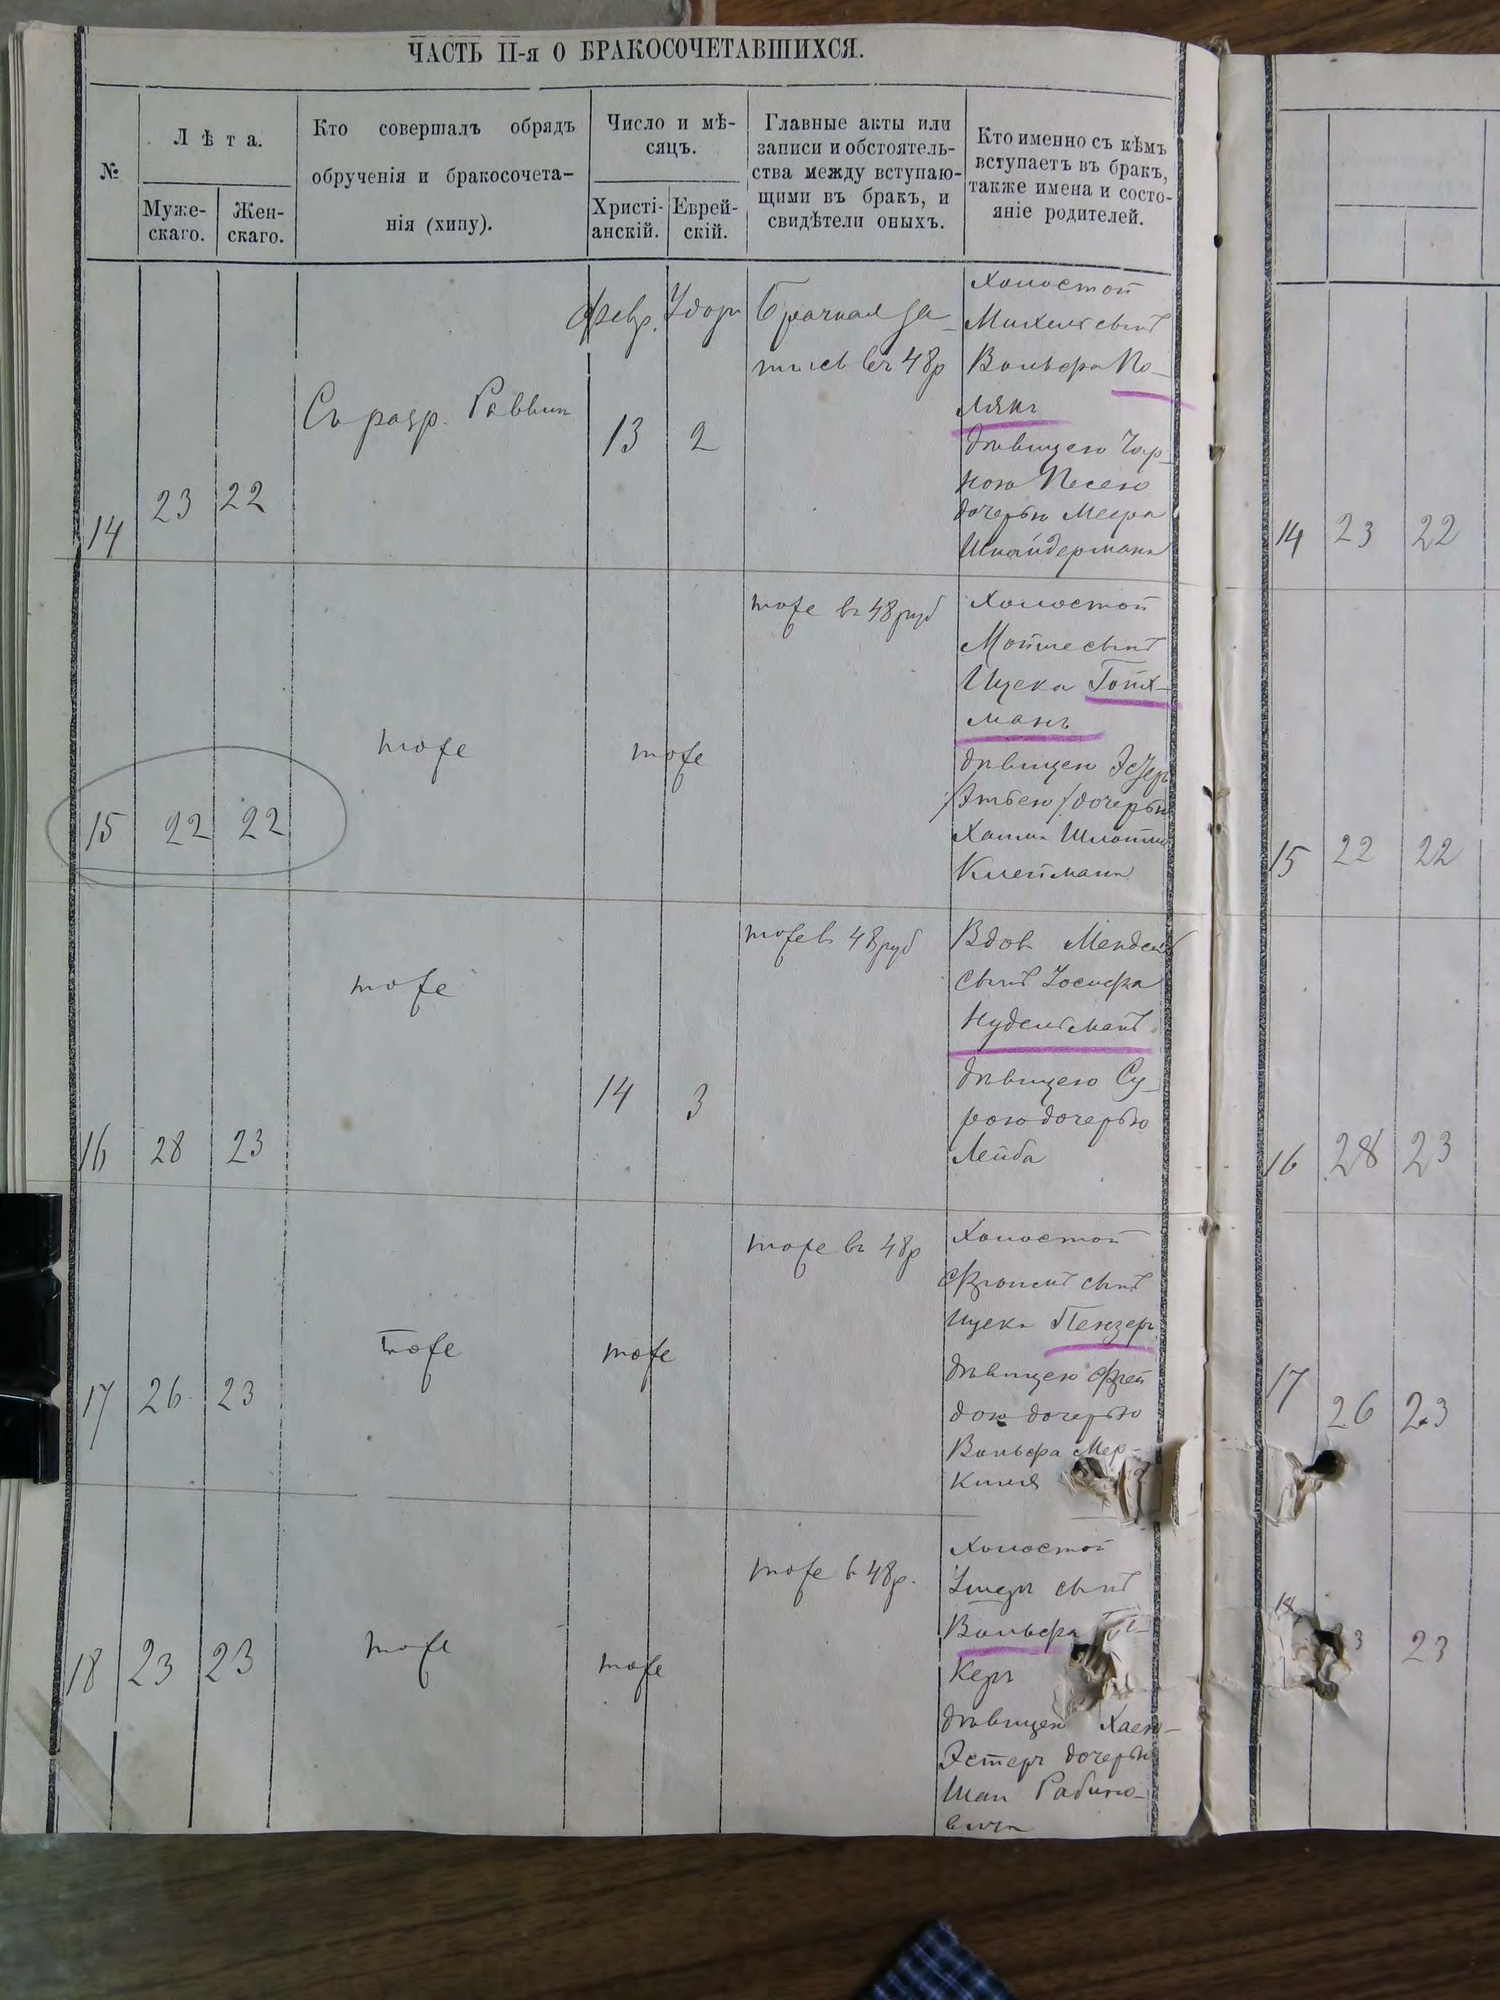 ЧАСТЬ II-я О БРАКОСОЧЕТАВШИХСЯ.
№
Лѣта.
Муже-
скаго.
Жен-
скаго.
Кто совершалъ обрядъ
обрученія и бракосочета-
нія (хипу).
Число и мѣ-
сяцъ.
Христі-
анскій.
Еврей-
скій.
Главные акты или
записи и обстоятель-
ства между вступаю-
щими въ бракъ, и
свидѣтели оныхъ.
Кто именно съ кѣмъ
вступаетъ въ бракъ,
также имена и состо-
яніе родителей.
14
23
22
Съ разр. Раввин
Февр.
13
2
Брачная за-
пись въ 48р
Холостой
Михель сынъ
Вольфа По-
лякъ
дѣвицею Чар-
ною Песею
дочерью Меера
Шнайдермана
15
22
22
тоже
тоже
тоже въ 48 руб
Холостой
Мойше сынъ
Ицека Гойх-
манъ
дѣвицею
дочерью
Хаима
Клеймана
16
28
23
тоже
14
3
тоже въ 48 руб
Вдов. Мендель
сынъ Іосифа
Нудельманъ
дѣвицею Су-
рою дочерью
Лейба
17
26
23
тоже
тоже
тоже въ 48р
Холостой
сынъ
Ицека Пензеръ
дѣвицею Фрей
дою дочерью
Вольфа Мер-
18
23
23
тоже
тоже
тоже въ 48р.
Холостой
сынъ
Вольфа
керъ
дѣвицею Хаею-
Эстеръ дочерью
Шаи Рабино-
вича
14 23 22
15 22 22
16 28 23
17 26 23
18 23